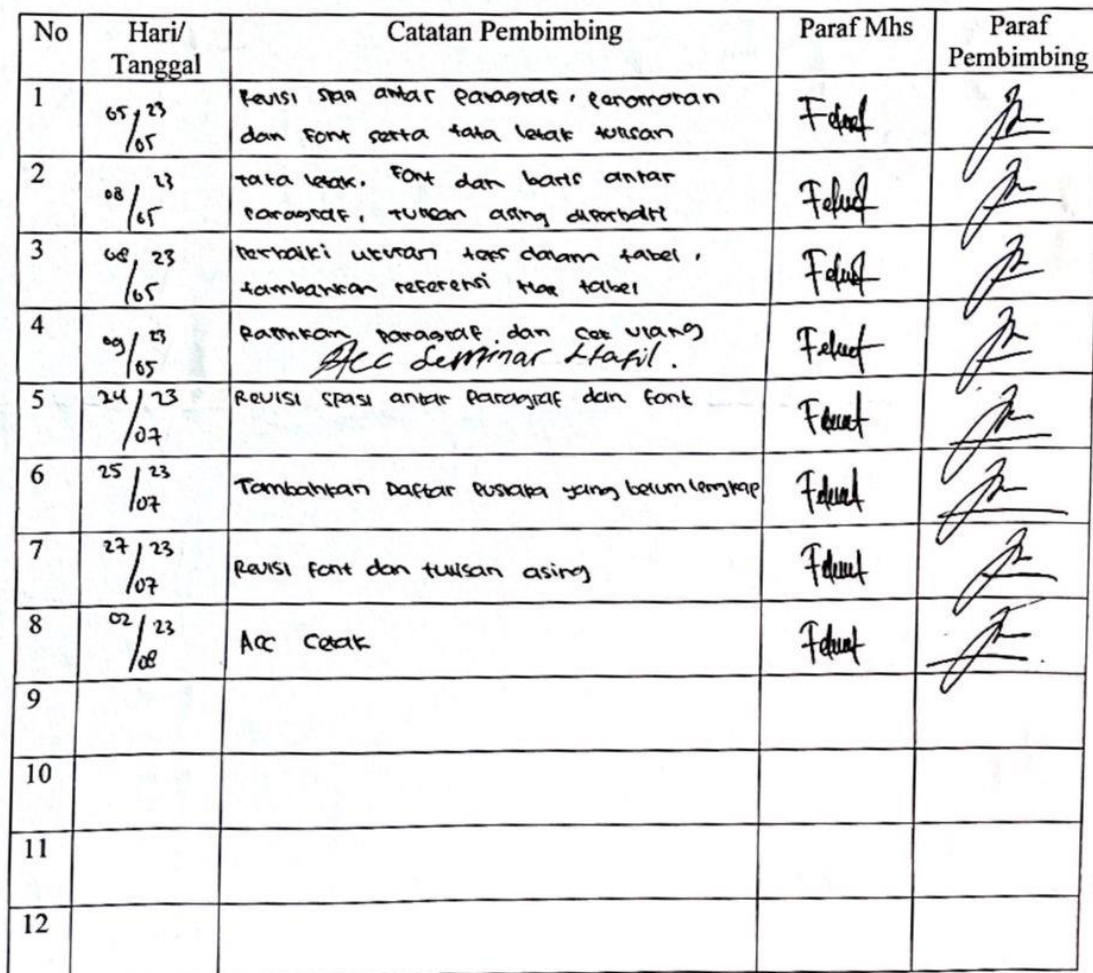 No Hari/ Tanggal Catatan Pembimbing Paraf Mhs Paraf Pembimbing
1 05/05 23 Revisi spasi antar paragraf, penomoran
dan font serta tata letak tulisan
2 08/05 23 tata letak, font dan baris antar
paragraf, tulisan asing diperbaiki
3 08/05 23 Perbaiki ukuran teks dalam tabel,
tambahkan referensi tiap tabel
4 09/05 23 Rapihkan paragraf dan cek ulang
Acc Seminar Hasil.
5 24/07 23 Revisi spasi antar paragraf dan font
6 25/07 23 Tambahkan Daftar Pustaka yang belum lengkap
7 27/07 23 Revisi font dan tulisan asing
8 02/08 23 Acc Cetak
9
10
11
12